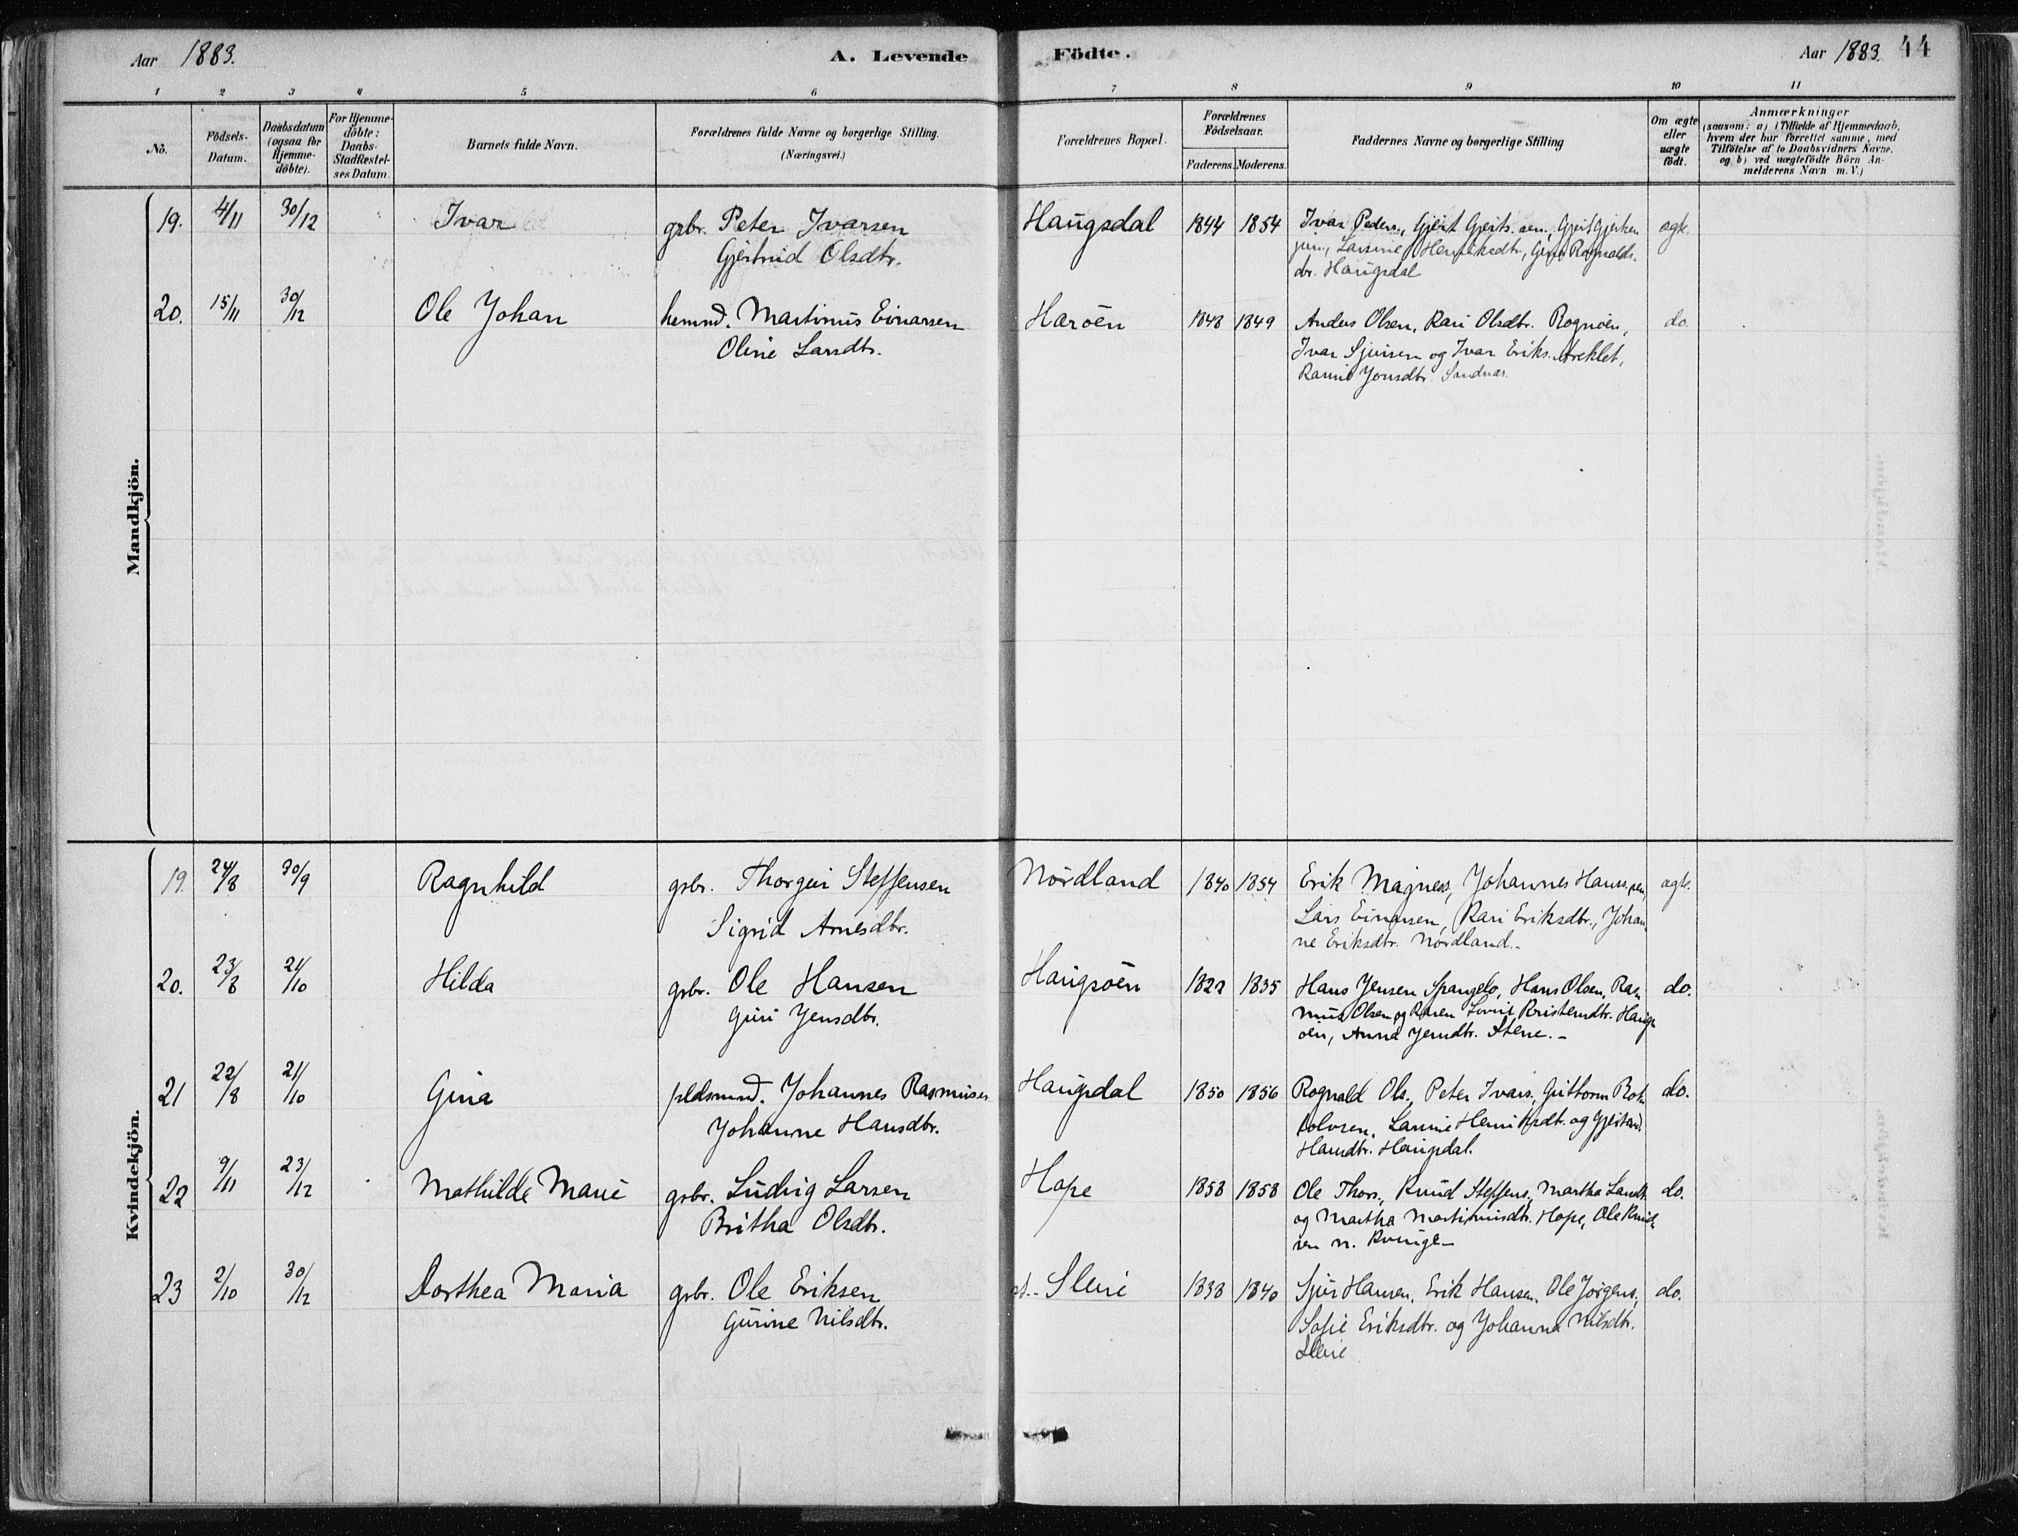 Aar 1883. A. Levende Födte. Aar 1883. 44
1 2 3 4 5 6 7 8 9 10 11
No. Födsels-Datum. Daabsdatum (ogsaa for Hjemme-döbte). For Hjemme-döbte: Daabs-Stadfæstel-ses Datum. Barnets fulde Navn. Forældrenes fulde Navne og borgerlige Stilling. (Næringsvei.) Forældrenes Bopæl. Forældrenes Födselsaar. Faderens. Moderens. Faddernes Navne og borgerlige Stilling Om ægte eller uægte födt. Anmærkninger
(saasom: a) i Tilfælde af Hjemmedaab,
hvem der har forrettet samme, med
Tilföielse af to Daabsvidners Navne,
og b) ved uægtefödte Börn An-
melderens Navn m. V.)
Mandkjön.
19. 4/11 30/12 Ivar gbr. Peter Ivarsen Haugsdal 1844 1854 Ivar Peders., Gjert Gjerts. sen., Gjert Gjertsen ægte.
Gjertrud Olsdtr. jun., Larsine Henriksdtr., Gina Ragnalds-
dr. Haugsdal
20. 15/11 30/12 Ole Johan hemmd. Martinus Einarsen Haröen 1848 1849 Anders Olsen, Kari Olsdtr. Rognöen, do.
Oline Larsdtr. Ivar Sjursen og Ivar Eriks.
Jonsdtr. Sandnæs.
Kvindekjön.
19. 24/8 30/9 Ragnhild gbr. Thorgeir Steffensen Nordland 1840 1854 Erik Magness, Johannes Hanss. sen, ægte.
Sigrid Arnesdtr. Lars Einarsen, Kari Eriksdtr., Johan-
ne Eriksdtr. Nordland.
20. 23/8 21/10 Hilda gbr. Ole Hansen Haugsöen 1822 1835 Hans Jensen Spangelo, Hans Olsen, Ras- do.
Guri Jensdtr. mus Olsen og Karen Kristensdtr. Haugs-
öen, Anna Jensdtr. Stene.
21 22/8 21/10 Gina Johannes Rasmusen Haugsdal 1850 1856 Rognald Ols., Peter Ivars., Guttorm Bot- do.
Johanne Hansdtr. tolvsen, Larsine Henriksdtr. og Gjertrud
Hansdtr. Haugsdal.
22 9/11 23/12 Mathilde Marie gbr. Ludvig Larsen Hope 1858 1858 Ole Thors., Knud Steffens., Martha Larsdt. do.
Britha Olsdtr. og Martha Martinusdtr. Hope, Ole Knud-
sen n. Kvinge
23 2/10 30/12 Dorthea Maria gbr. Ole Eriksen Sleire 1838 1840 Sjur Hansen, Erik Hansen, Ole Jörgens., do.
Gurine Nilsdtr. Sofie Eriksdtr. og Johanna Nilsdtr.
Sleire